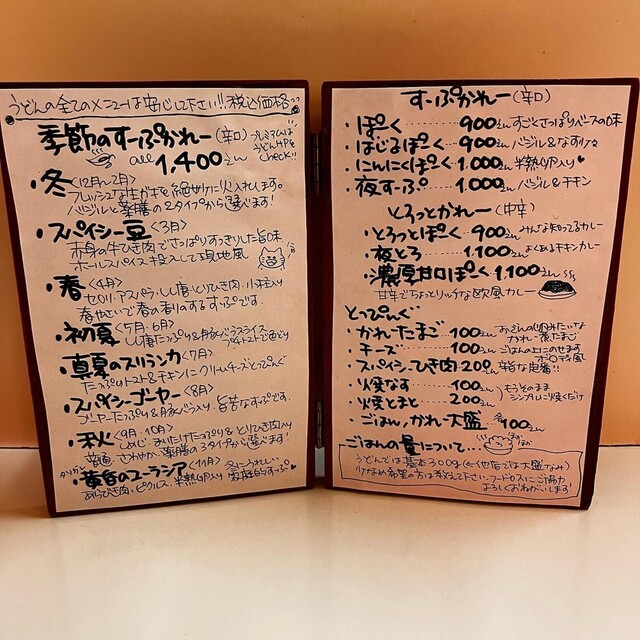 うどんの全てのメニューは安心して下さい!!税込価格
季節のすーぷかれー(辛口)
プレミアムは
うどんHPを
check!!
all 1,400えん
・冬〈12月〜2月〉
フレッシュな生がきを絶妙に火入れします。
バジルと薬膳の2タイプから選べます!
・スパイシー豆〈3月〉
赤身の牛ひき肉でさっぱりすっきりした旨味
ホールスパイス投入して現地風
・春〈4月〉
セロリ・アスパラ・しし唐・とりひき肉・小柱入り
春やさいで春の香りのするすーぷです。
・初夏〈5月・6月〉
しし唐たっぷり&豚ばらスライス
プチトマトで色どり
・真夏のスリランカ〈7月〉
たっぷりトマト&チキンにクリームチーズとっぴんぐ
・スパイシーゴーヤー〈8月〉
ゴーヤーたっぷり&豚ばら入り 旨苦なすーぷです.
・秋〈9月・10月〉
しめじ・まいたけたっぷり&とりひき肉入り
普通、さわやか、薬膳の3タイプから選べます!
・黄昏のユーラシア〈11月〉
冬にうれしい
あらびき肉・ピクルス・半熟卵入り
すーぷかれー(辛口)
・ぽーく 900えん すごくさっぱりベースの味
・ばじるぽーく 900えん バジル&なす入り
・にんにくぽーく 1,000えん 半熟卵入り♥
・夜すーぷ 1,000えん バジル&チキン
とろっとかれー(中辛)
・とろっとぽーく 900えん みんな知ってるカレー
・夜とろ 1,100えん よくあるチキンカレー
・濃厚甘口ぽーく 1,100えん
甘辛でちょっとリッチな欧風カレー
とっぴんぐ
・かれーたまご 100えん
・チーズ 100えん ごはんの上にのせます
・スパイシーひき肉 200えん
・火焼なす 100えん
・火焼とまと 200えん
もうそのまま
シンプルに焼くだけ
・ごはん,かれー大盛 各100えん
ごはんの量について…
うどんでは基本300g(←他店では大盛なみ)
少なめ希望の方は教えて下さい.フードロスにご協力
よろしくおねがいします!